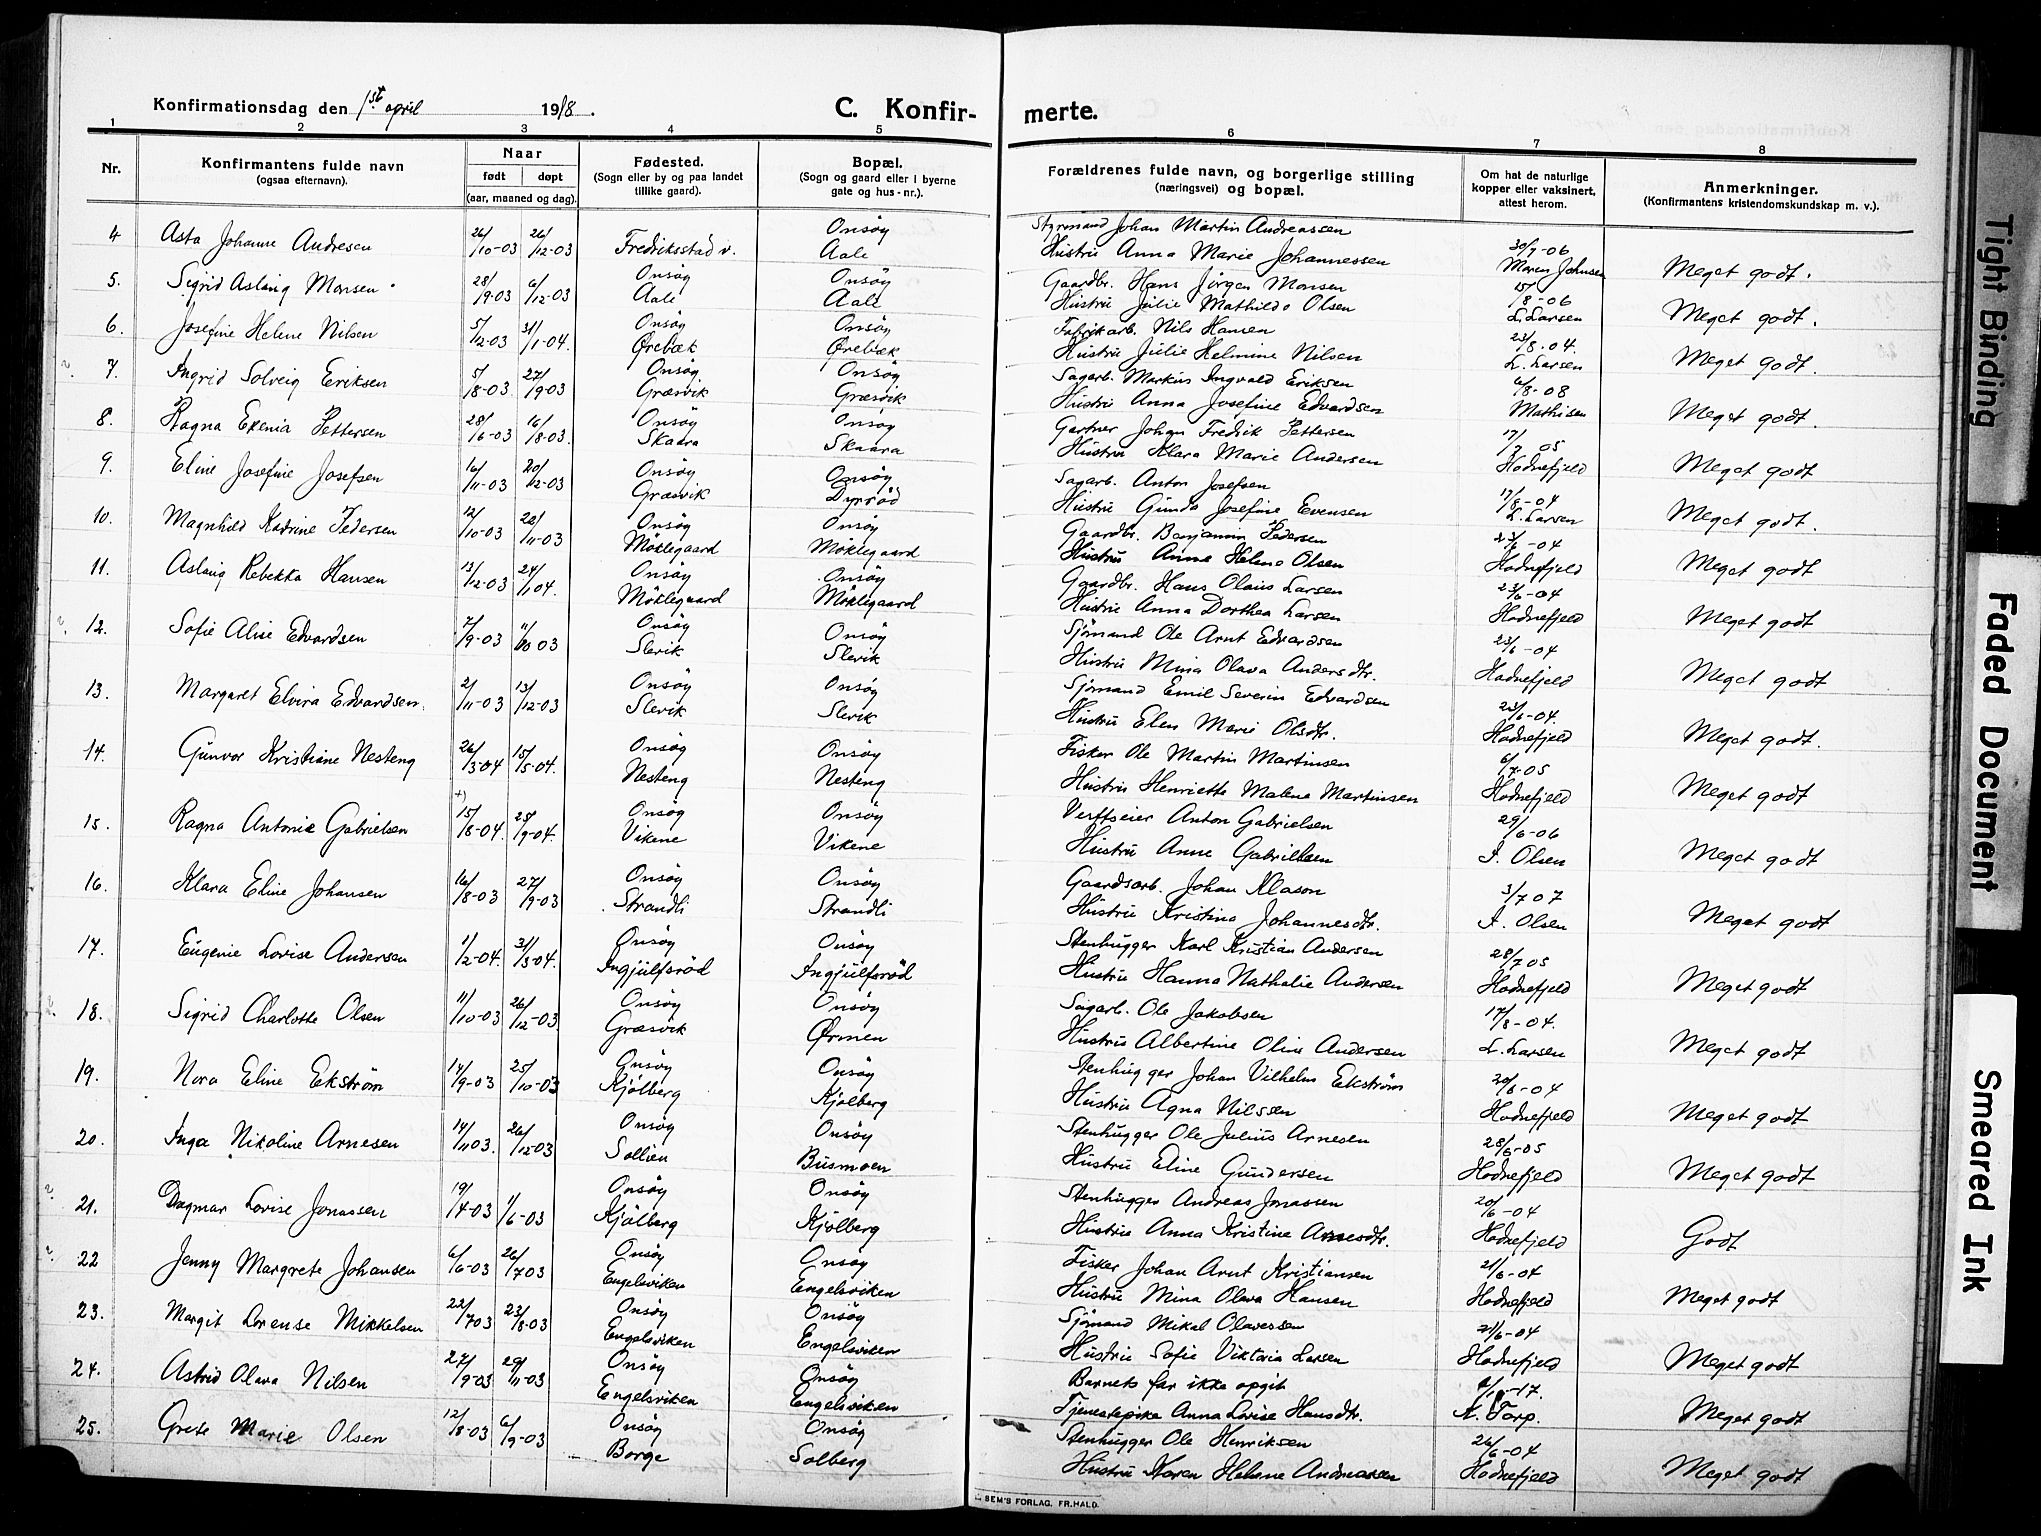 Konfirmationsdag den 1st april 1918. C. Konfir- merte.
1 2 3 4 5 6 7 8
Nr. Konfirmantens fulde navn (ogsaa efternavn). Naar født døpt (aar, maaned og dag). Fødested. (Sogn eller by og paa landet tillike gaard). Bopæl. (Sogn og gaard eller i byerne gate og hus-nr.). Forældrenes fulde navn, og borgerlige stilling (næringsvei) og bopæl. Om hat de naturlige kopper eller vaksinert, attest herom. Anmerkninger. (Konfirmantens kristendomskundskap m. v.).
4 Asta Johanne Andresen 26/10-03 26/12-03 Fredriksstad v. Onsöy Aale Styrmand Johan Martin Andreassen
Hustru Anna Marie Johannessen 30/7-06 Maren Johnsen Meget godt.
5. Sigrid Aslaug Monsen 28/9-03 6/12-03 Onsöy Aale Onsöy Aale Gaardbr. Hans Jörgen Monsen
Hustru Julie Mathilde Olsen 15/8-06 L. Larsen Meget godt.
6. Josefine Helene Nilsen 5/12-03 31/1-04. Onsöy Ørebæk Onsöy Ørebæk Fabrikarb. Nils Hansen
Hustru Julie Helmine Nilsen 23/8.04. L. Larsen Meget godt.
7. Ingrid Solveig Eriksen 5/8-03 27/9-03 Onsöy Græsvik Onsöy Græsvik Sagarb. Markus Ingvald Eriksen
Hustru Anna Josefine Edvardsen 6/8-08 Mathisen Meget godt.
8. Ragna Exenia Pettersen 28/6-03 16/8-03. Onsöy Skaara Onsöy Skaara Gartner Johan Fredrik Pettersen
Hustru Klara Marie Andersen 17/7 05 Hodnefjeld Meget godt
9. Eline Josefine Josefsen 16/11-03 20/12-03 Onsöy Græsvik Onsöy Dyrröd Sagarb. Anton Josefsen
Hustru Gunda Josefine Evensen 17/8-04 L. Larsen Meget godt.
10. Magnhild Katrine Pedersen 12/10-03 22/11-03 Onsöy Möklegaard Onsöy Möklegaard Gaardbr. Benjamin Pedersen
Hustru Anna Helene Olsen 23/6-04 Hodnefjeld Meget godt
11. Aslaug Rebekka Hansen 13/12-03 24/1 04. Onsöy Möklegaard Onsöy Möklegaard Gaardbr. Hans Olaus Larsen
Hustru Anna Dorthea Larsen 23/6-04 Hodnefjeld Meget godt
12. Sofie Alise Edvardsen 7/9-03 11/10 03 Onsöy Slevik Onsöy Slevik Sjömand Ole Arnt Edvardsen
Hustru Mina Olava Andersdtr. 23/6-04 Hodnefjeld Meget godt
13. Margaret Elvira Edvardsen. 2/11-03 13/12-03 Onsöy Slevik Onsöy Slevik Sjömand Emil Severin Edvardsen
Hustru Elen Marie Olsdtr. 23/6-04. Hodnefjeld Meget godt.
14. Gunvor Kristiane Nesteng 26/3-04 15/5-04. Onsöy Nesteng Onsöy Nesteng Fisker Ole Martin Martinsen
Hustru Henriette Malene Martinsen 6/7-05 Hodnefjeld Meget godt
15. Ragna Antonie Gabrielsen +) 15/8-04. 25/9-04. Onsöy Vikene Onsöy Vikene Verftseier Anton Gabrielsen
Hustru Anne Gabrielsen 29/6-06 I. Olsen Meget godt
16. Klara Eline Johansen 16/8-03 27/9-03 Onsöy Strandli Onsöy Strandli Gaardsarb. Johan Klason
Hustru Kristina Johannesdtr. 3/7 07 I. Olsen Meget godt
17. Eugenie Lovise Andersen 1/2-04. 31/3-04. Onsöy Ingjulfsröd Onsöy Ingjulfsröd Stenhugger Karl Kristian Andersen
Hustru Hanna Nathalie Andersen 28/7 05 Hodnefjeld Meget godt
18. Sigrid Charlotte Olsen 11/10-03 26/12-03 Onsöy Græsvik Onsöy Ørmen Sagarb. Ole Jakobsen
Hustru Albertine Oline Andersen 17/8-04. L. Larsen Meget godt
19. Nora Eline Ekström 14/9-03 25/10-03 Onsöy Kjölberg Onsöy Kjölberg Stenhugger Johan Vilhelm Ekström
Hustru Agna Nilssen 20/6-04 Hodnefjeld Meget godt
20. Inga Nikoline Arnesen 14/11 03. 26/12-03 Onsöy Sollien Onsöy Busmoen Stenhugger Ole Julius Arnesen
Hustru Eline Gundersen 28/6-05 Hodnefjeld Meget godt
21. Dagmar Lovise Jonassen 19/4-03 1/6-03 Onsöy Kjölberg Onsöy Kjölberg Stenhugger Andreas Jonassen
Hustru Anna Kristine Arnesdtr. 20/6-04 Hodnefjeld Godt
22 Jenny Margrete Johansen 6/6-03 26/7 03 Onsöy Engelsviken Onsöy Engelsviken Fisker Johan Arnt Kristiansen
Hustru Mina Olava Hansen 21/6-04 Hodnefjeld Meget godt
23. Margit Lorense Mikkelsen 22/7 03 23/8-03 Onsöy Engelsviken Onsöy Engelsviken Sjömand Mikal Olavessen
Hustru Sofie Viktoria Larsen 21/6-04 Hodnefjeld Meget godt
24. Astrid Olava Nilsen 27/9-03 29/11-03 Onsöy Engelsviken Onsöy Engelsviken Barnets far ikke opgit
Tjenestepike Anna Lovise Hansdtr. -17. Torp. Meget godt
25. Grete Marie Olsen 12/8-03 6/9-03 Onsöy Borge Onsöy Solberg Stenhugger Ole Henriksen
Hustru Karen Helene Andreassen 26/6-04 Hodnefjeld Meget godt
SEM'S FORLAG, FR.HALD.
Tight Binding
Faded Document
Smeared Ink